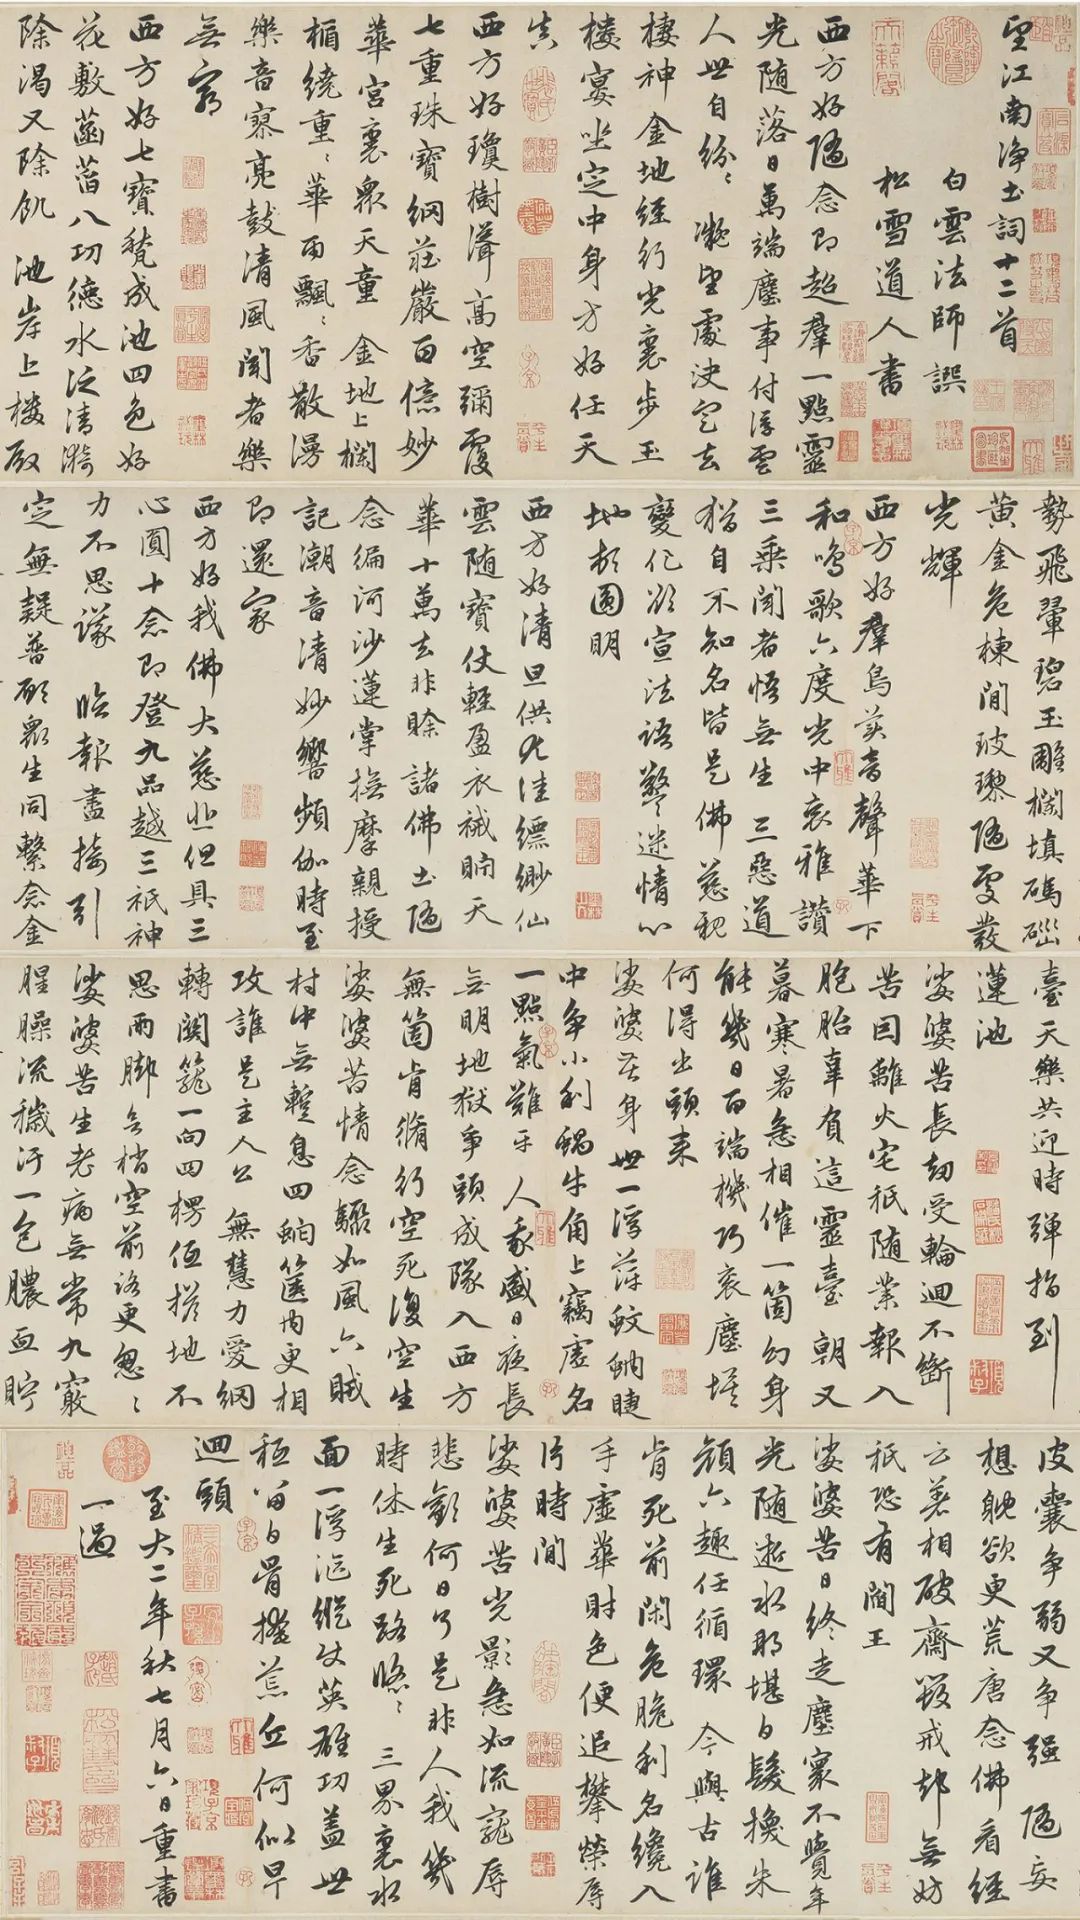 望江南净土詞十二首
白雲法師譔
松雪道人書
西方好隨念即超羣一點靈
光随落日萬端塵事付浮雲
人世自紛〻凝望處決定去
棲神金地經行光裏步玉
樓宴坐定中身方好任天
真
西方好瓊樹聳高空彌覆
七重珠寶網莊嚴百億妙
華宮裏衆天童金地上欄
楯繞重〻華雨飄〻香散漫
樂音寥亮鼓清風聞者樂
無窮
西方好七寶甃成池四色好
花敷菡萏八功德水泛清漪
除渴又除飢池岸上樓殿
勢飛翬碧玉雕欄填碼碯
黄金危棟間玻瓈隨處發
光輝
西方好羣鳥美音聲華下
和鳴歌六度光中哀雅讚
三乘聞者悟無生三惡道
猶自不知名皆是佛慈親
變化欲宣法語警迷情心
地頓圓明
西方好清旦供尤佳縹緲仙
雲随寶仗輕盈衣裓貯天
華十萬去非賒諸佛土隨
念徧河沙蓮掌撫摩親授
記潮音清妙響頻伽時至
即還家
西方好我佛大慈悲但具三
心圓十念即登九品越三祇神
力不思議臨報盡接引
定無疑普願衆生同繫念金
臺天樂共迎時彈指到
蓮池
娑婆苦長劫受輪迴不斷
苦因離火宅衹随業報入
胞胎辜負這靈臺朝又
暮寒暑急相催一箇幻身
能幾日百端機巧衮塵埃
何得出頭来
娑婆苦身世一浮萍蚊蚋睫
中争小利蝸牛角上竊虚名
一點氣難平人我盛日夜長
無明地獄争頭成隊入西方
無箇肯脩行空死復空生
娑婆苦情念驟如風六賊
村中無蹔息四蛇篋内更相
攻誰是主人公無慧力愛網
轉關籠一向四楞低搭地不
思兩脚兮梢空前路更怱〻
娑婆苦生老病無常九竅
腥臊流穢汙一包膿血貯
皮囊争弱又争强隨妄
想躭欲更荒唐念佛看經
云著相破齋毁戒却無妨
衹恐有閻王
娑婆苦日終走塵寰不覺年
光随逝水那堪白髮換朱
顔六趣任循環今與古誰
肯死前閑危脆利名纔入
手虚華財色便追攀榮辱
片時間
娑婆苦光影急如流寵辱
悲歡何日了是非人我幾
時休生死路悠〻三界裏水
面一浮漚縱使英雄功蓋世
秪留白骨掩荒丘何似早
迴頭
至大二年秋七月六日重書
一過